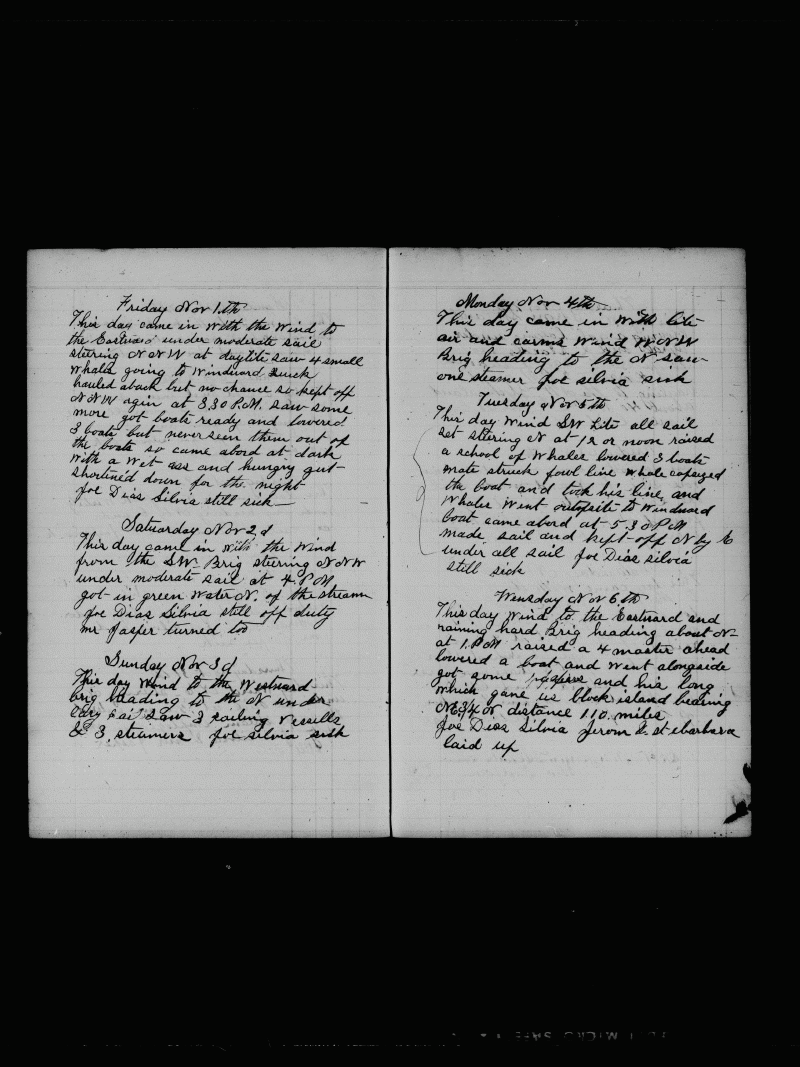 Friday Nov 1.th
This day came in with the wind to
the Eastward under moderate sail
steering N N W at daylite saw 4 small
whales going to windward quick
hauled aback but no chance so kept off
N N W agin at 3,30 P.M. saw some
more got boats ready and lowered
3 boats but never seen them out of
the boats so came abord at dark
with a wet ass and hungry gut
shortined down for the night
Joe Dias Silvia still sick
Satuarday Nov 2,d
This day came in with the wind
from the SW Brig steering N N W
under moderate sail at 4. P M
got in green water N. of the stream
Joe Dias Silvia still off duty
mr Jasper turned too
Sunday Nov 3 d
This day wind to the Westward
brig heading to the N under
easy sail saw 3 sailing vessells
& 3, steamers Joe silvia sick
Monday Nov 4th
This day came in with lite
air and carms wind W N W
Brig heading to the N saw
one steamer Joe silvia sick
Tuesday Nov 5th
This day wind SW lite all sail
set stering N at 12 or noon raised
a school of whales lowered 3 boats
mate struck fowl line whale capsized
the boat and took his line and
whales went to windward
boat came abord at 5.30 P M
made sail and kept off N by E
under all sail Joe Dias silvia
still sick
Wensday Nov 6.th
This day wind to the Eastward and
raining hard Brig heading about N
at 1. P M raised a 4 master ahead
lowered a boat and went alongside
got some papers and his long
which gave us block island bearing
distance 110 miles
Joe Dias Silvia Jerom
laid up